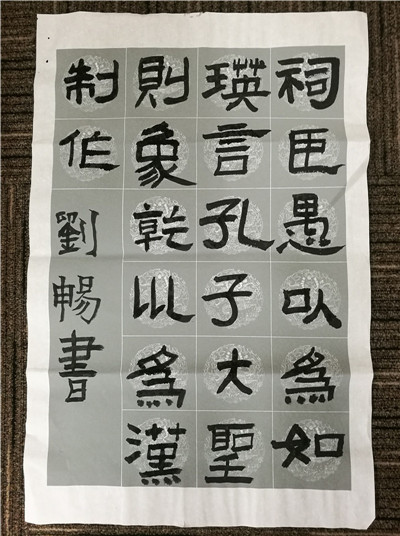 祠臣愚以為如
瑛言孔子大聖
則象乾以為漢
制作
劉暢書